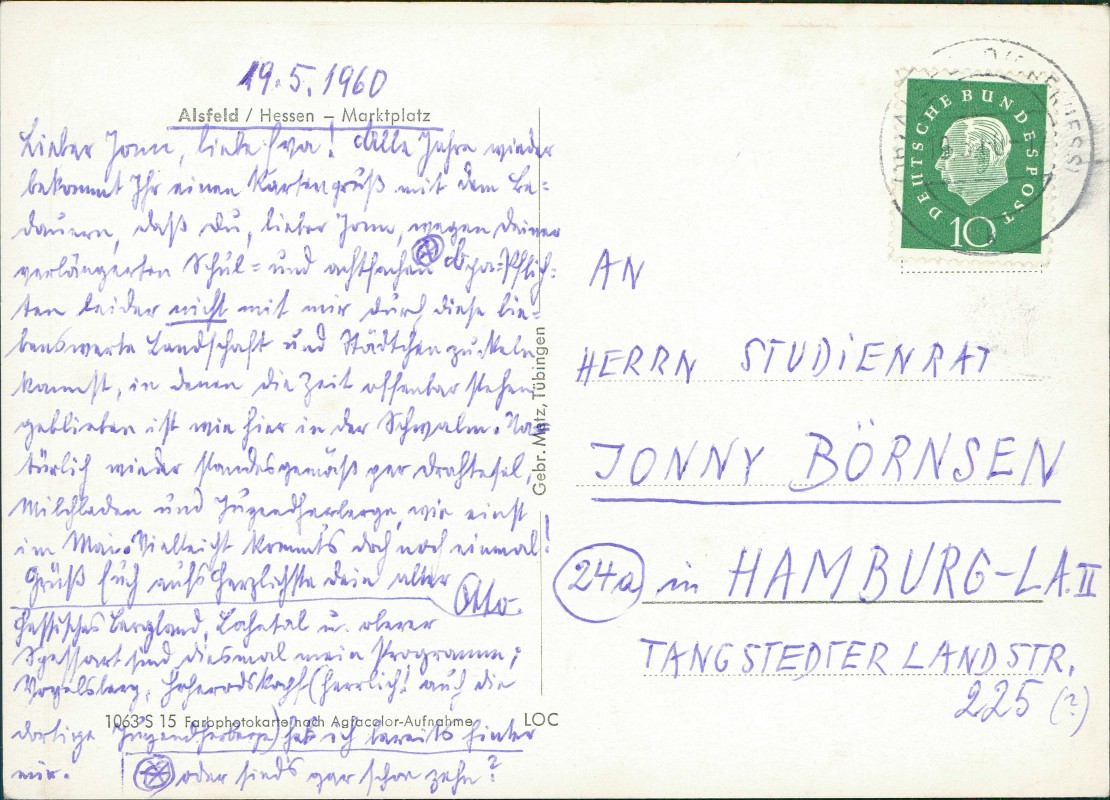 19.5.1960
Alsfeld / Hessen – Marktplatz
Lieber Jonn, liebe Eva! Alle Jahre wieder
bekommt Ihr einen Kartengruß mit dem Be=
dauern, daß du, lieber Jonn, wegen deiner
verlängerten Schul= und achtfachen ⊛ Opa=Pflich=
ten leider nicht mit mir durch diese lie=
benswerte Landschaft und Städtchen zuckeln
kannst, in denen die Zeit offenbar stehen
geblieben ist wie hier in der Schwalm. Na=
türlich wieder standesgemäß per Drahtesel,
Milchladen und Jugendherberge, wie einst
im Mai. Vielleicht kommts doch noch einmal!
Grüß Euch aufs herzlichste dein alter
Otto.
Hessisches Bergland, Lahntal u. oberer
Spessart sind diesmal mein Programm;
Vogelsberg, Hoherodskopf (herrlich! auch die
dortige Jugendherberge) hab ich bereits hinter
mir.
⊛ oder sinds gar schon zehn?
1063 S 15 Farbphotokarte nach Agfacolor-Aufnahme
LOC
Gebr. Metz, Tübingen
DEUTSCHE BUNDESPOST
10
AN
HERRN STUDIENRAT
JONNY BÖRNSEN
24a in HAMBURG-LA. II
TANGSTEDTER LANDSTR.
225 (?)